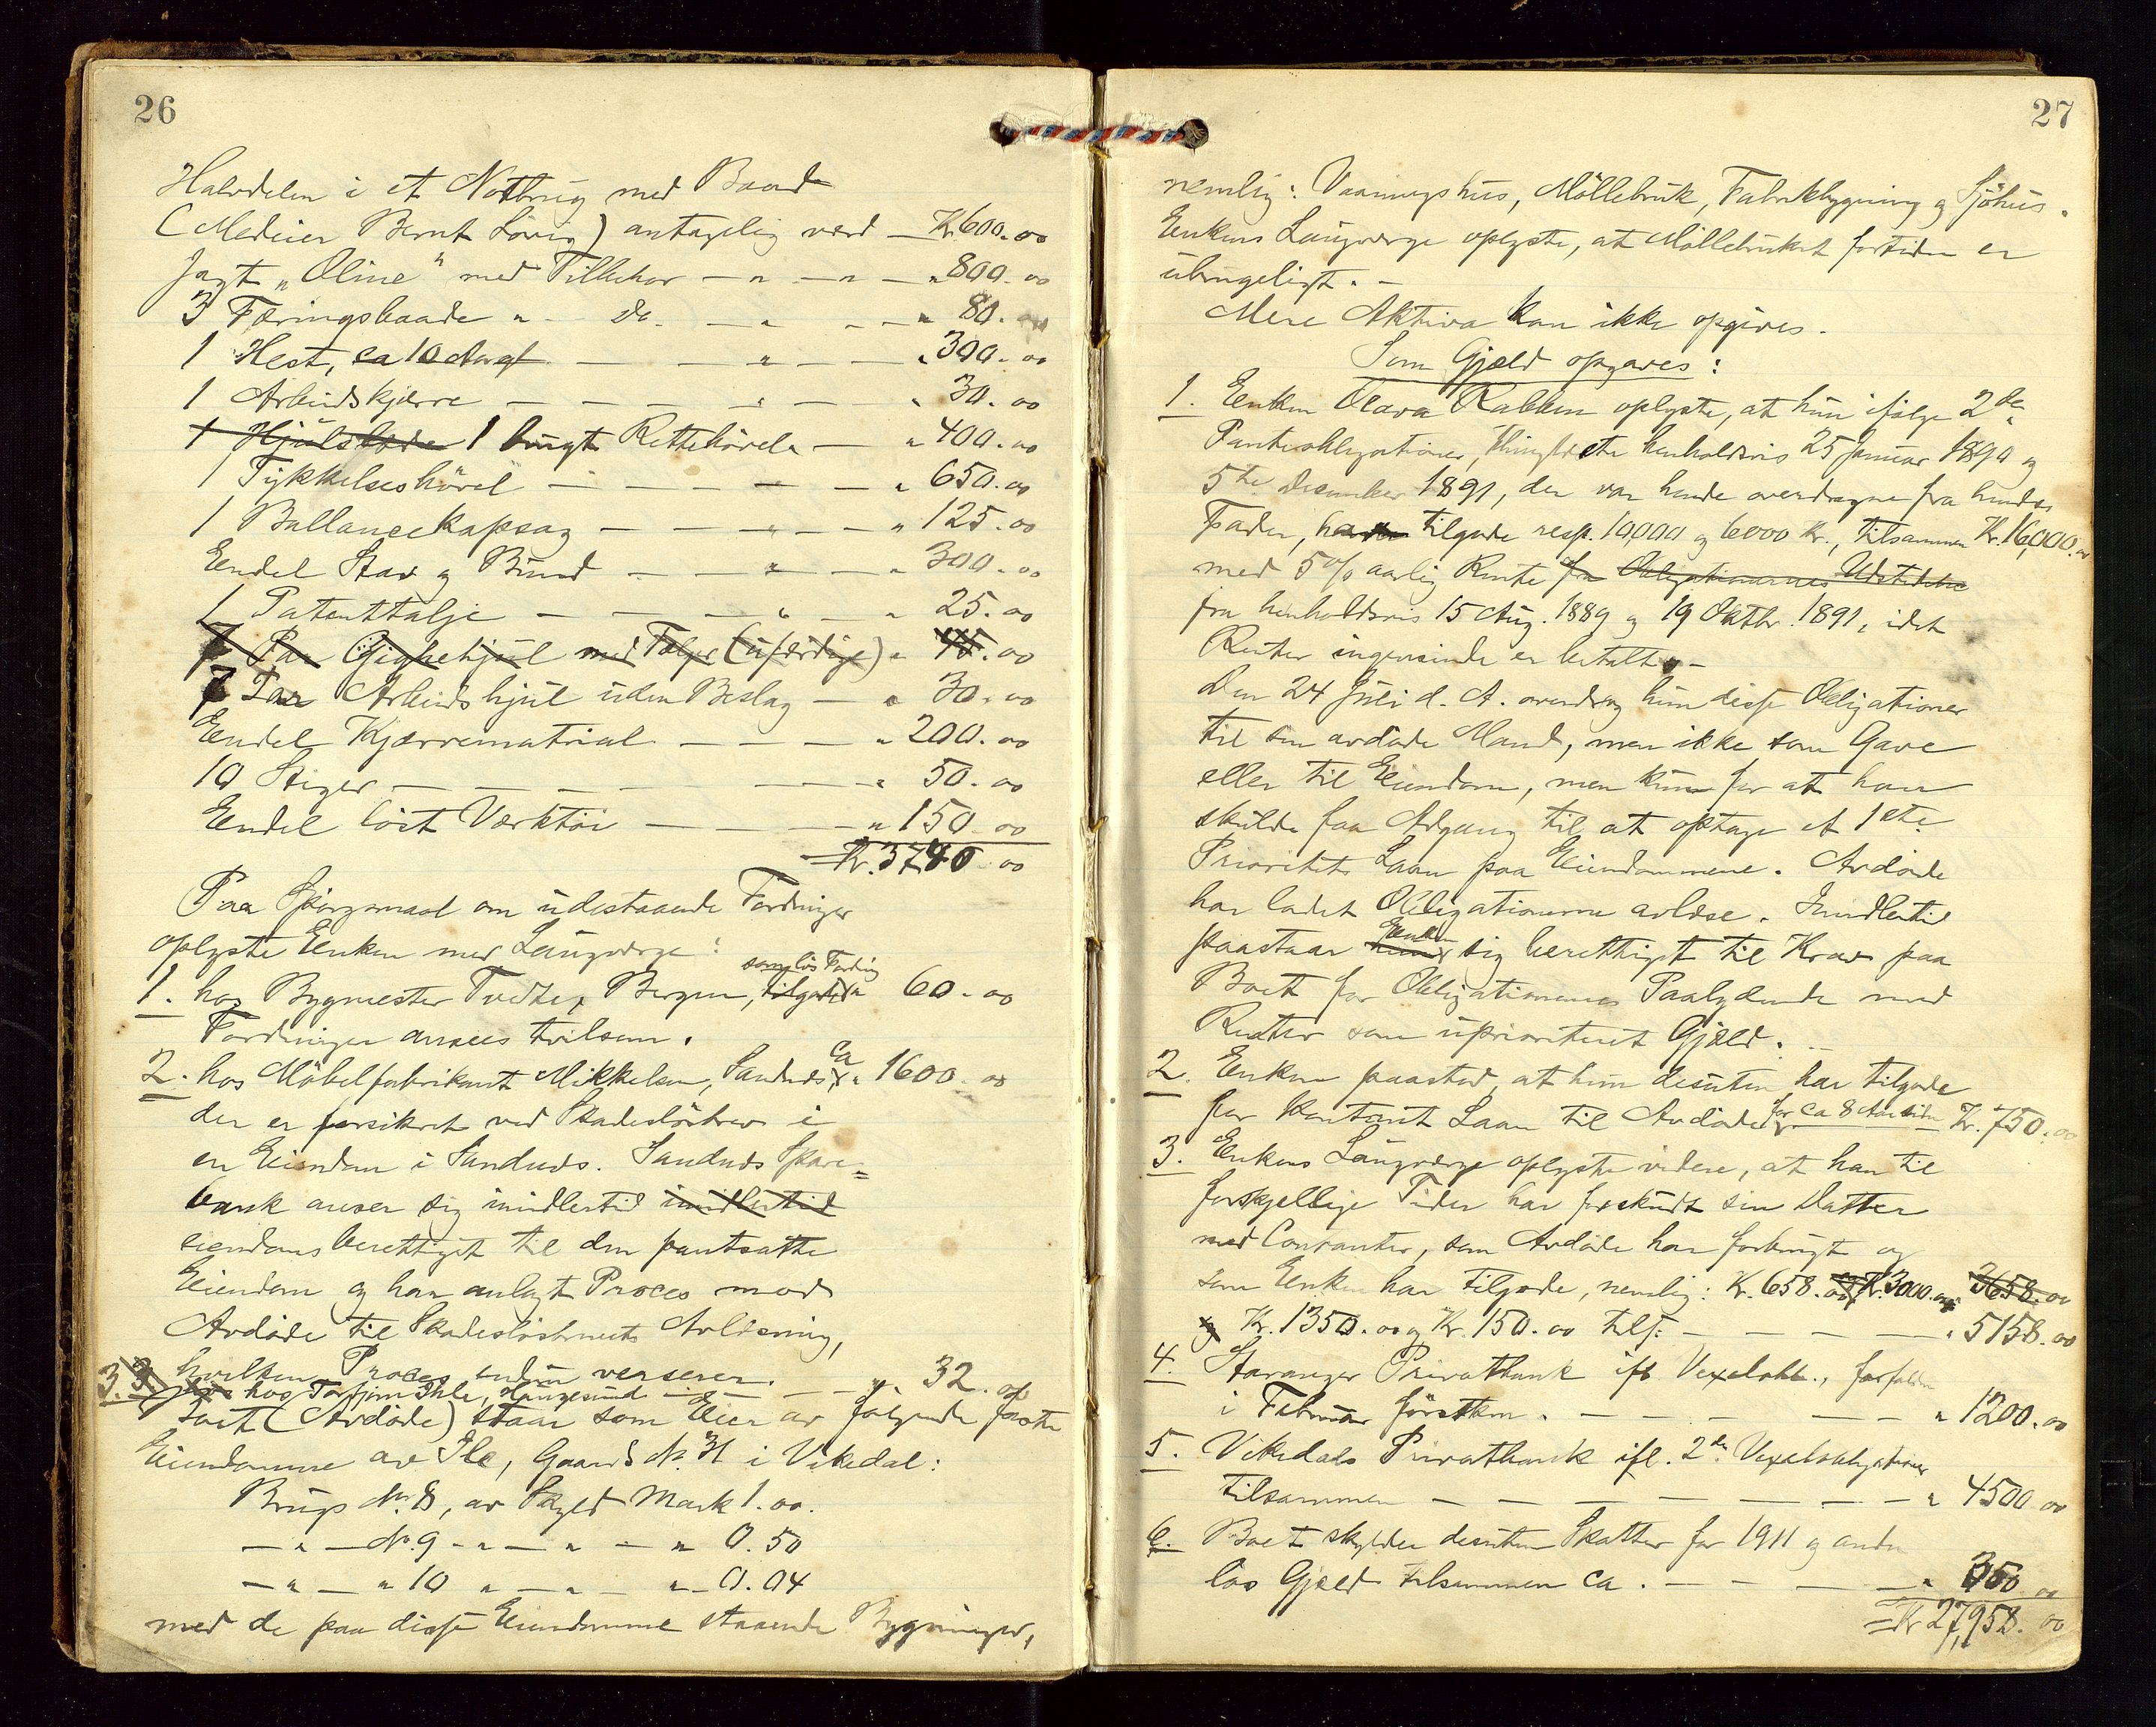 26
Halvdelen i et Notbrug med Baad
(Medeier Bernt Lövig) antagelig værd — Kr. 600.00
Jagt „Oline" med Tilbehør — " — " — " 800.00
3 Færingsbaade " do. — " — " 80.
1 Hest, ca 10 Aar gl — " — " 300.00
1 Arbeidskjærre — — — " — " 30.00
1 Hjulslade 1 brugt Rettehövel — " 400.00
1 Tykkelseshövel — — — — " 650.00
1 Ballancekapsag — — " — " 125.00
Endel Stav og Bund — — " — " 300.00
1 Patenttalje — — — " — " 25.00
Par Gighjul med Felger (uferdige) " 45.00
7 Par Arbeidshjul uden Beslag — " 30.00
Endel Kjærrematrial — — — " 200.00
10 Stiger — — — — — — " 50.00
Endel löst Værktöi — — — " 150.00
Kr. 3740.00
Paa Spörgsmaal om udestaaende Fordringer
oplyste Enken med Laugværge:
som lös Fordring
1. hos Bygmester Tvedte, Bergen, tilgode " 60.00
Fordringen ansees tvilsom.
2. hos Möbelfabrikant Mikkelsen, Sandnes, ca " 1600.00
der er forsikret ved Skadeslösbrev i
en Eiendom i Sandnes. Sandnes Spare=
bank anser sig imidlertid imidlertid
eiendomsberettiget til den pantsatte
Eiendom og har anlagt Proces mod
Avdöde til Skadeslösbrevets Avlösning,
hvilken Proces endnu verserer.
3. hos Torfinn Ihle, Haugesund — — — " 32.00
Boet (Avdöde) staar som Eier av fölgende faste
Eiendomme av Ile, Gaards No. 31 i Vikedal:
Brugs No. 8, av Skyld Mark 1.00.
— " — No. 9 — " — " — " 0.50
— " — " 10 " — " — " 0.04
med de paa disse Eiendomme staaende Bygninger,
27
nemlig: Vaaningshus, Möllebruk, Fabrikbygning og Sjöhus.
Enkens Laugværge oplyste, at Möllebruket fortiden er
ubrugeligt. —
Mere Aktiva kan ikke opgives.
Som Gjæld opgaves:
1. Enken Olava Rabben oplyste, at hun ifölge 2de
Panteobligationer, thinglæste henholdsvis 25 Januar 1890 og
5te December 1891, der var hende overdragne fra hendes
Fader, har tilgode resp. 10,000 og 6000 Kr., tilsammen Kr. 16,000.00
med 5% aarlig Rente fra Obligationernes Udstedelse
fra henholdsvis 15 Aug. 1889 og 19 Oktbr. 1891, idet
Renter ingensinde er betalt. —
Den 24 Juli d. A. overdrog hun disse Obligationer
til sin avdöde Mand, men ikke som Gave
eller til Eiendom, men kun for at han
skulde faa Adgang til at optage et 1ste
Prioritets Laan paa Eiendommene. Avdöde
har ladet Obligationerne avlæse. Imidlertid
paastaar hun Enken sig berettiget til Krav paa
Boet for Obligationernes Paalydende med
Renter som uprioriteret Gjæld. —
2. Enken paastod, at hun desuten har tilgode
for kontant Laan til Avdöde for ca 8 Aar siden Kr. 750.00
3. Enkens Laugværge oplyste videre, at han til
forskjellige Tider har forskudt sin Datter
med Contanter, som Avdöde har forbrugt og
som Enken har tilgode, nemlig: Kr. 658.00 og Kr. 3000.00 3658.00
og Kr. 1350.00 og Kr. 150.00 tils: — — — — " 5158.00
4. Stavanger Privatbank ifl. Vexelobl., forfalden
i Februar förstkm. — — — — — " 1200.00
5. Vikedals Privatbank ifl. 2de Vexelobligationer
tilsammen — — — — — — — " 4500.00
6. Boet skylder desuten Skatter for 1911 og anden
lös Gjæld tilsammen ca. — — — — " 350.00
Kr 27,958.00